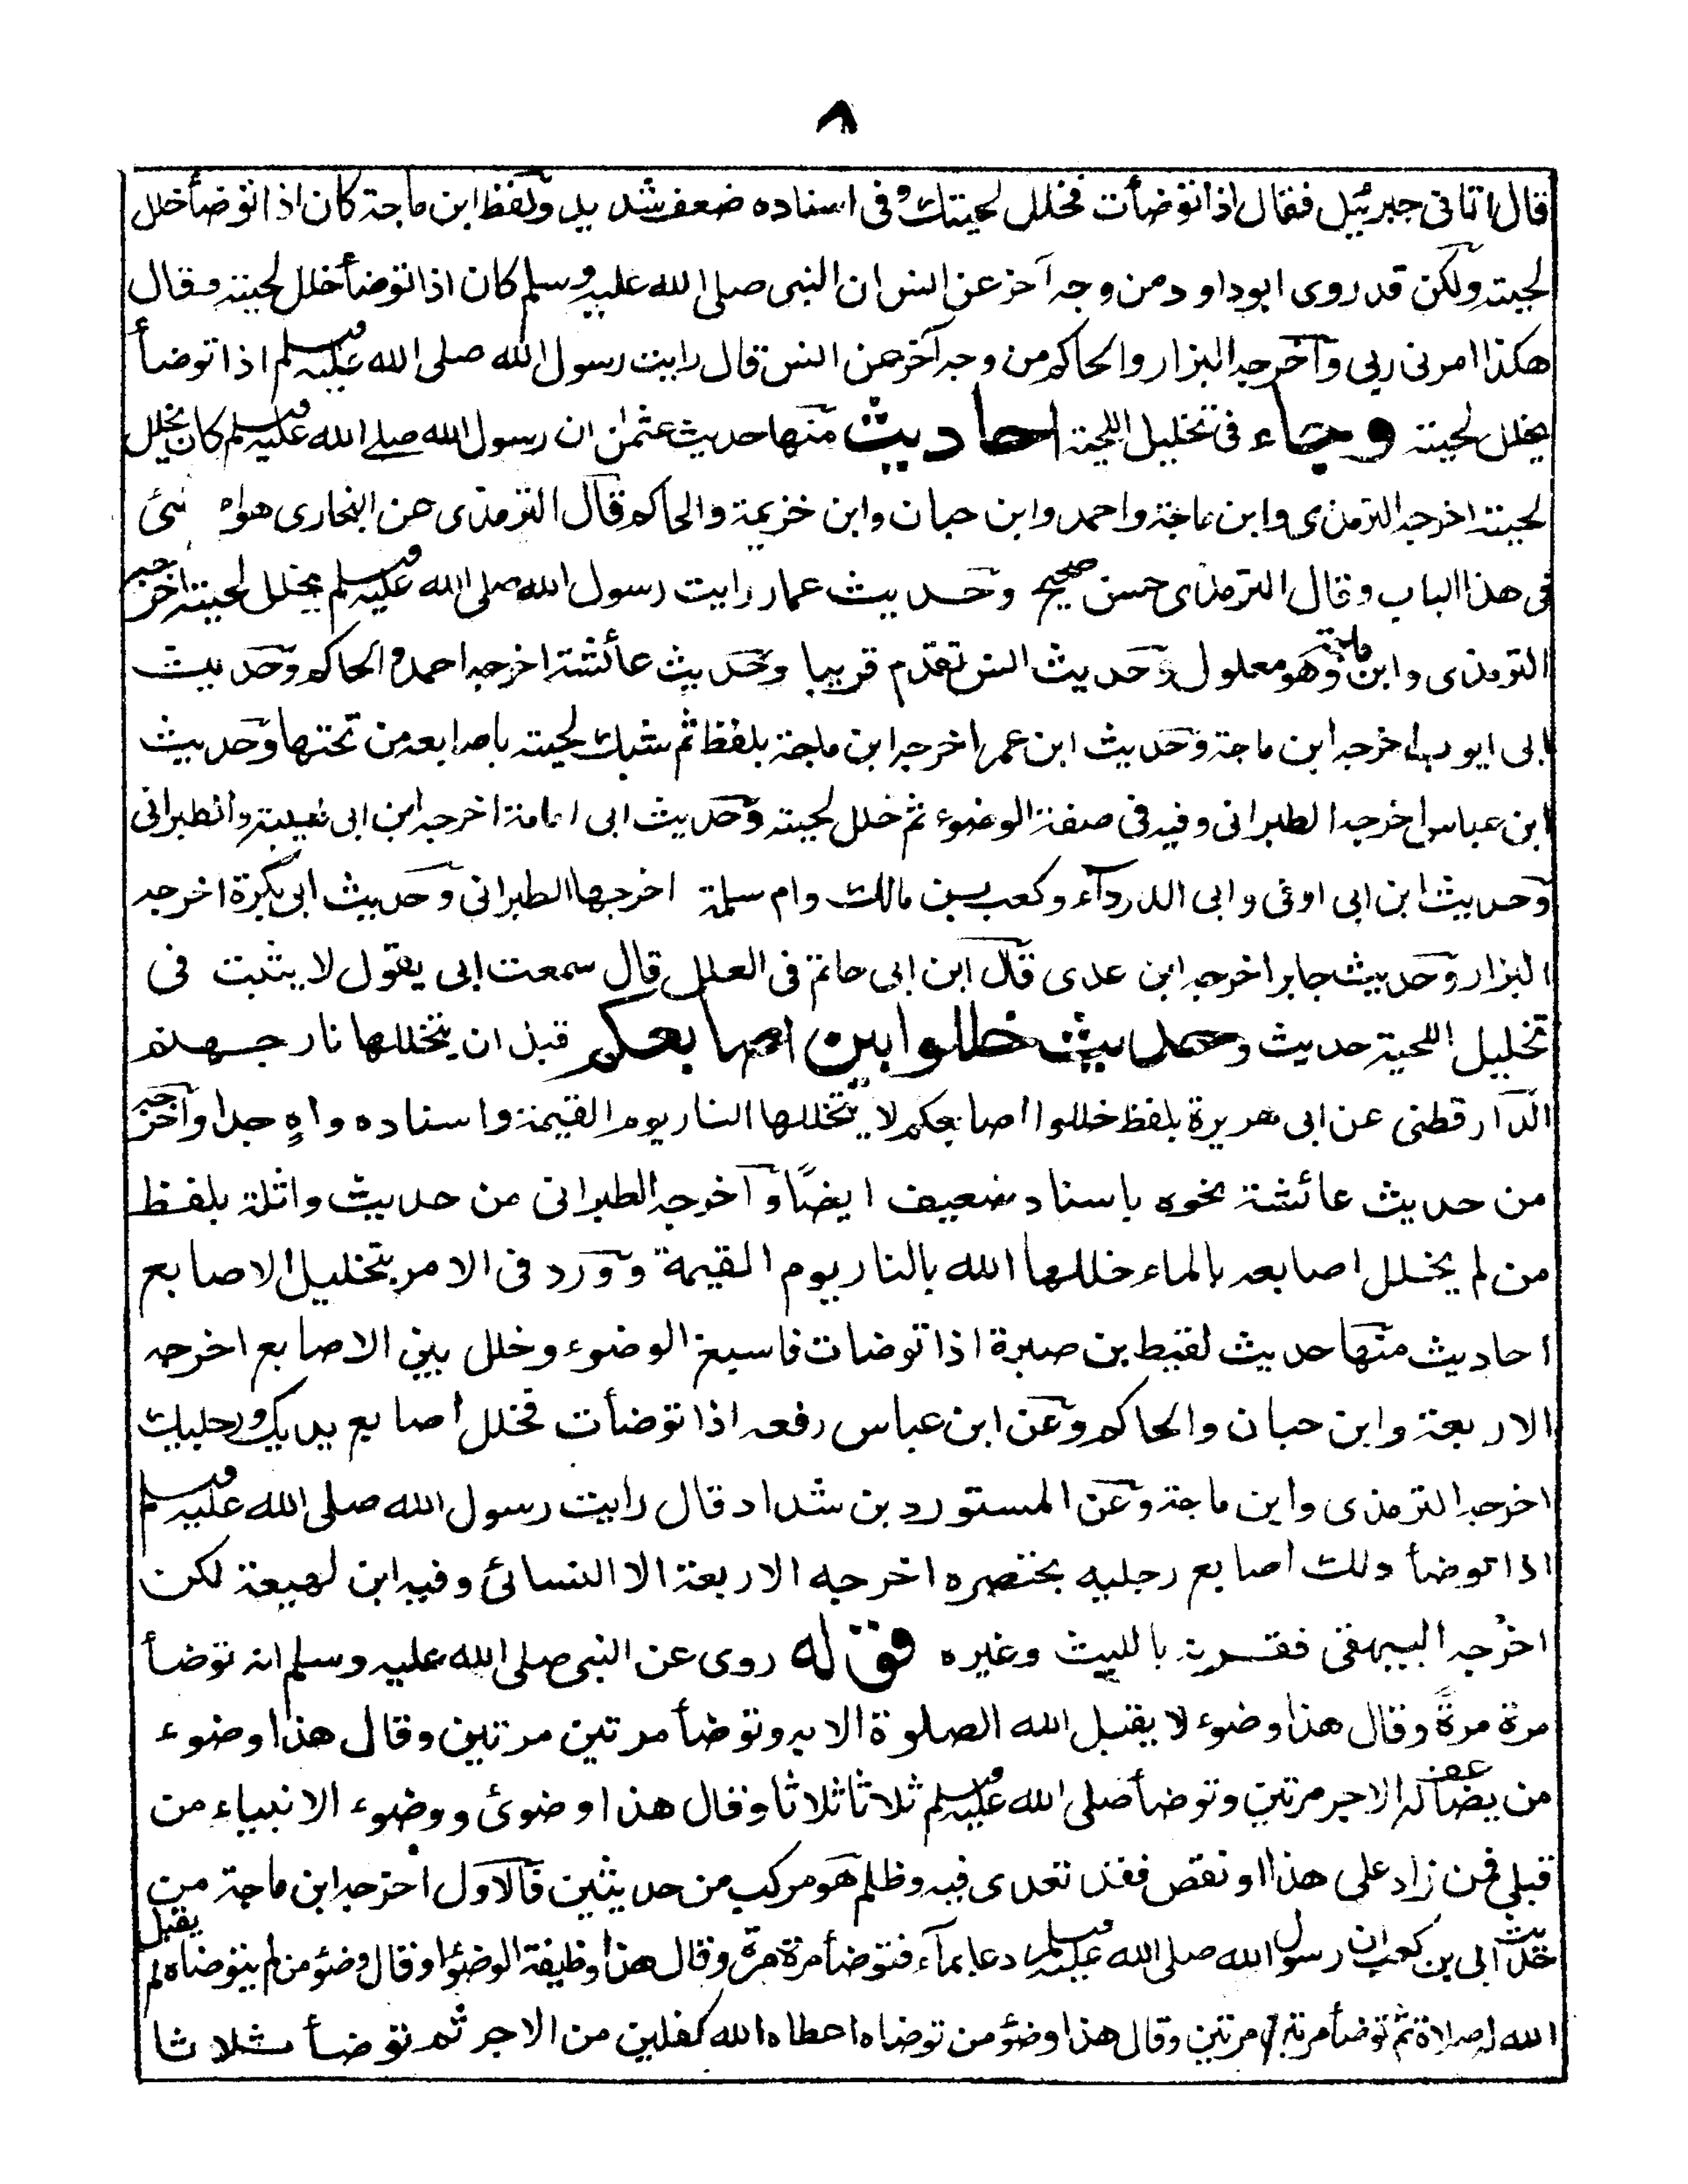 ٨
قال اتانى جبرئيل فقال اذا توضأت فخلل لحيتك وفى اسناده ضعف شديد ولفظ ابن ماجة كان اذا توضأ خلل
لحيته ولكن قد روى ابوداود من وجه آخر عن انس ان النبى صلى الله عليه وسلم كان اذا توضأ خلل لحيته وقال
هكذا امرنى ربى وآخرجه البزار والحاكم من وجه آخر عن انس قال رايت رسول الله صلى الله عليه وسلم اذا توضأ
يخلل لحيته وجاء فى تخليل اللحية احاديث منها حديث عثمن ان رسول الله صلے الله عليه وسلم كان يخلل
لحيته اخرجه الترمذى وابن ماجة واحمد وابن حبان وابن خزيمة والحاكم قال الترمذى عن البخارى هو شئ
فى هذا الباب وقال الترمذى حسن صحيح وحديث عمار رايت رسول الله صلى الله عليه وسلم يخلل لحيته اخرجه
الترمذى وابن ماجة وهو معلول وحديث انس تقدم قريبا وحديث عائشة اخرجه احمد والحاكم وحديث
ابى ايوب اخرجه ابن ماجة وحديث ابن عمر اخرجه ابن ماجة بلفظ ثم شبك لحيته باصابعه من تحتها وحديث
ابن عباس اخرجه الطبرانى وفيه فى صفة الوضوء ثم خلل لحيته وحديث ابى امامة اخرجه ابن ابى شيبة والطبرانى
وحديث ابن ابى اوفى وابى الدرداء وكعب بن مالك وام سلمة اخرجها الطبرانى وحديث ابى بكرة اخرجه
البزار وحديث جابر اخرجه ابن عدى قال ابن ابى حاتم فى العلل قال سمعت ابى يقول لا يثبت فى
تخليل اللحية حديث وحديث خللوا بين اصابعكم قبل ان يتخللها نار جهنم
الدارقطنى عن ابى هريرة بلفظ خللوا اصابعكم لا يتخللها النار يوم القيمة واسناده واهٍ جدا وآخرجه
من حديث عائشة نحوه باسناد ضعيف ايضًا وآخرجه الطبرانى من حديث واثلة بلفظ
من لم يخلل اصابعه بالماء خللها الله بالنار يوم القيمة وورد فى الامر بتخليل الاصابع
احاديث منها حديث لقيط بن صبرة اذا توضات فاسبغ الوضوء وخلل بين الاصابع اخرجه
الاربعة وابن حبان والحاكم وعن ابن عباس رفعه اذا توضأت فخلل اصابع يديك ورجليك
اخرجه الترمذى وابن ماجة وعن المستورد بن شداد قال رايت رسول الله صلى الله عليه وسلم
اذا توضأ دلك اصابع رجليه بخنصره اخرجه الاربعة الا النسائى وفيه ابن لهيعة لكن
اخرجه البيهقى فقرنه بالليث وغيره قوله روى عن النبى صلى الله عليه وسلم انه توضأ
مرة مرةً وقال هذا وضوء لا يقبل الله الصلوة الا به وتوضأ مرتين مرتين وقال هذا وضوء
من يضاعف له الاجر مرتين وتوضأ صلى الله عليه وسلم ثلاثا ثلاثا وقال هذا وضوئ ووضوء الانبياء من
قبلى فمن زاد على هذا او نقص فقد تعدى فيه وظلم هو مركب من حديثين فالاول اخرجه ابن ماجة من
حديث ابى بن كعب ان رسول الله صلى الله عليه وسلم دعا بماء فتوضأ مرة مرة وقال هذا وظيفة الوضؤ او قال وضؤ من لم يتوضاه لم يقبل
الله له صلاة ثم توضأ مرتين مرتين وقال هذا وضؤ من توضاه اعطاه الله كفلين من الاجر ثم توضأ ثلاثا